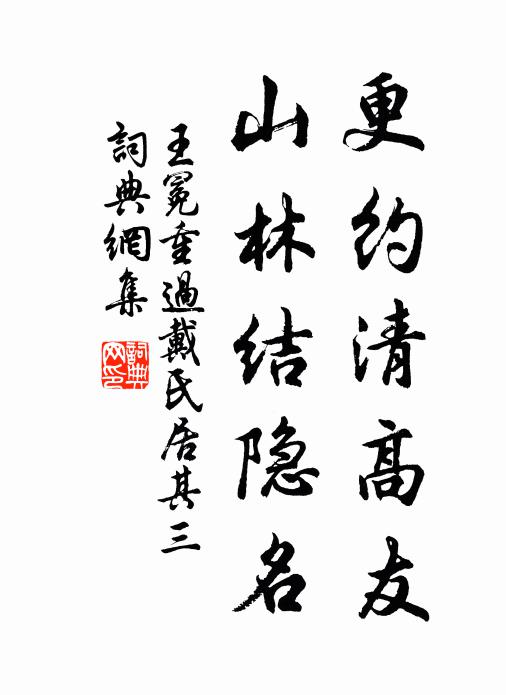 更约清高友
山林结隐名
王冕重過戴氏居其三
詞典網集
詞典网印